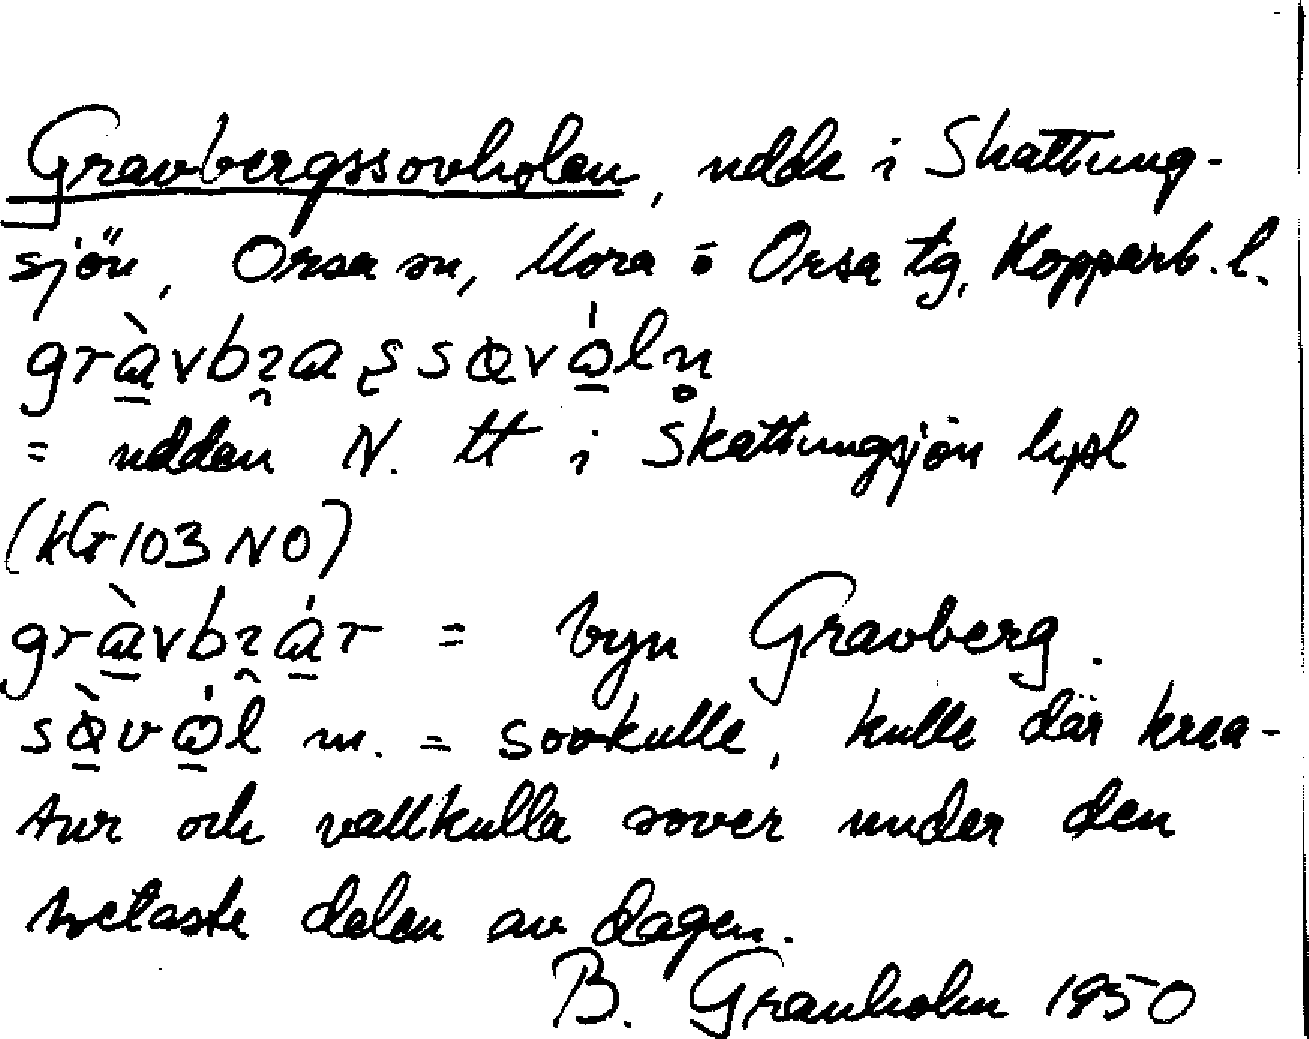 Gravbergssovholen, udde i Skattung-
sjön, Orsa sn, Mora o Orsa tg, Kopparb. l.
= udden N. tt i Skattungsjön hpl
(kG 103 NO)
= byn Gravberg.
m. = sovkulle, kulle där krea-
tur och vallkulla sover under den
hetaste delen av dagen.
B. Granholm 1950